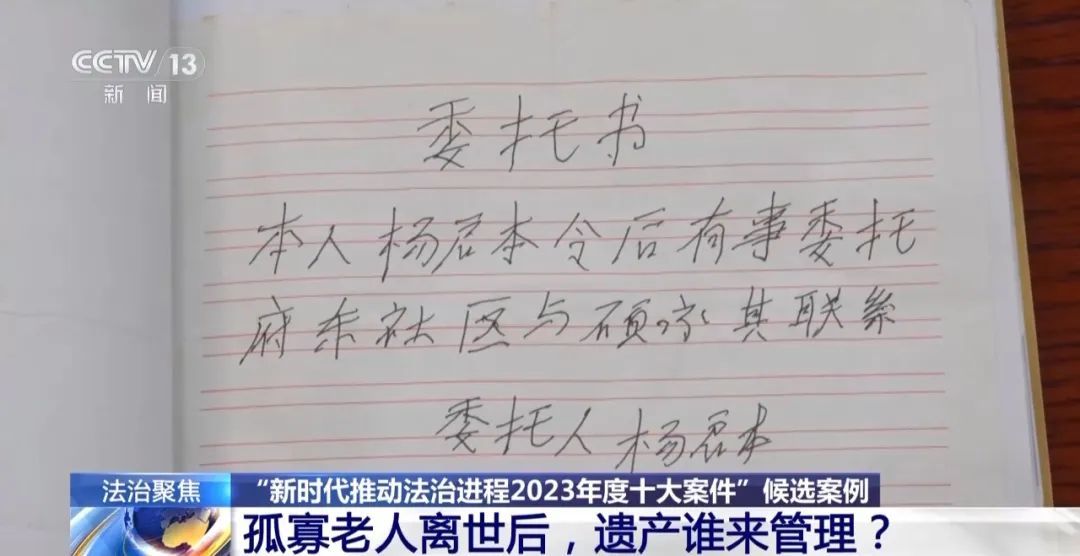 CCTV 13
新闻
委托书
本人杨本今后有事委托
府东社区与永其联系
委托人 杨本
法治聚焦
“新时代推动法治进程2023年度十大案件”候选案例
孤寡老人离世后，遗产谁来管理？